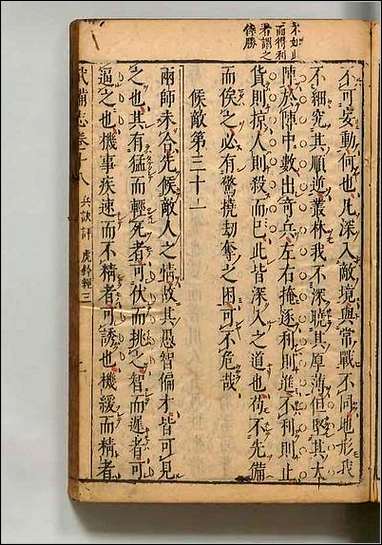 不如此
而得利
者謂之
倖勝
不可妄動何也凡深入敵境與常戰不同地形我
不細究其順逆叢林我不深曉其厚薄但堅其大
陣於陣中數出奇兵左右掩逐利則進不利則止
貨則掠人則殺而已此皆深入之道也苟不先備
而俟之必有驚撓劫奪之困可不危哉
候敵第三十一
兩師未合先候敵人之情故其愚智偏才皆可見
之也其有猛而輕死者可伏而挑之智而遲者可
逼之也機事疾速而不精者可誘也機緩而精者
武備志卷十八 兵訣評 虎鈐經三